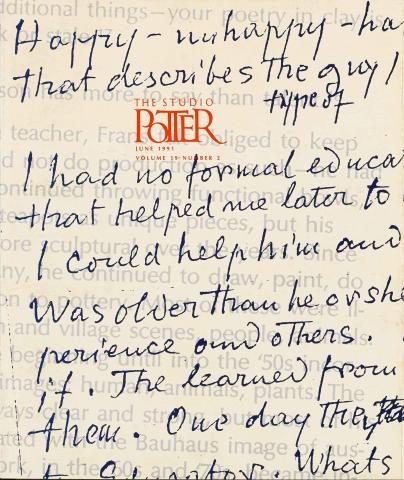 Happy - unhappy - ha
that describes the guy!
type of
THE STUDIO
POTTER
JUNE 1991
VOLUME 19 NUMBER 2
I had no formal educa
that helped me later to
I could help him and
was older than he or she
perience and others.
it. The learned from
them. One day the
Whats
ditional things—your poetry in clay
son has more to say than t
teacher, Fran
obliged to keep
do produc
had
ontinued throwing functional
tea
unique pieces, but his
ore sculptural over the
Since
hy, he continued to draw, paint, do
on to pottery
were il-
and village scenes, people
beg
until into the '50s
images human, animals, plants. The
ways clear and strong, but
ated with the Bauhaus image of aus-
ork, in the '60s and '70s, became in-